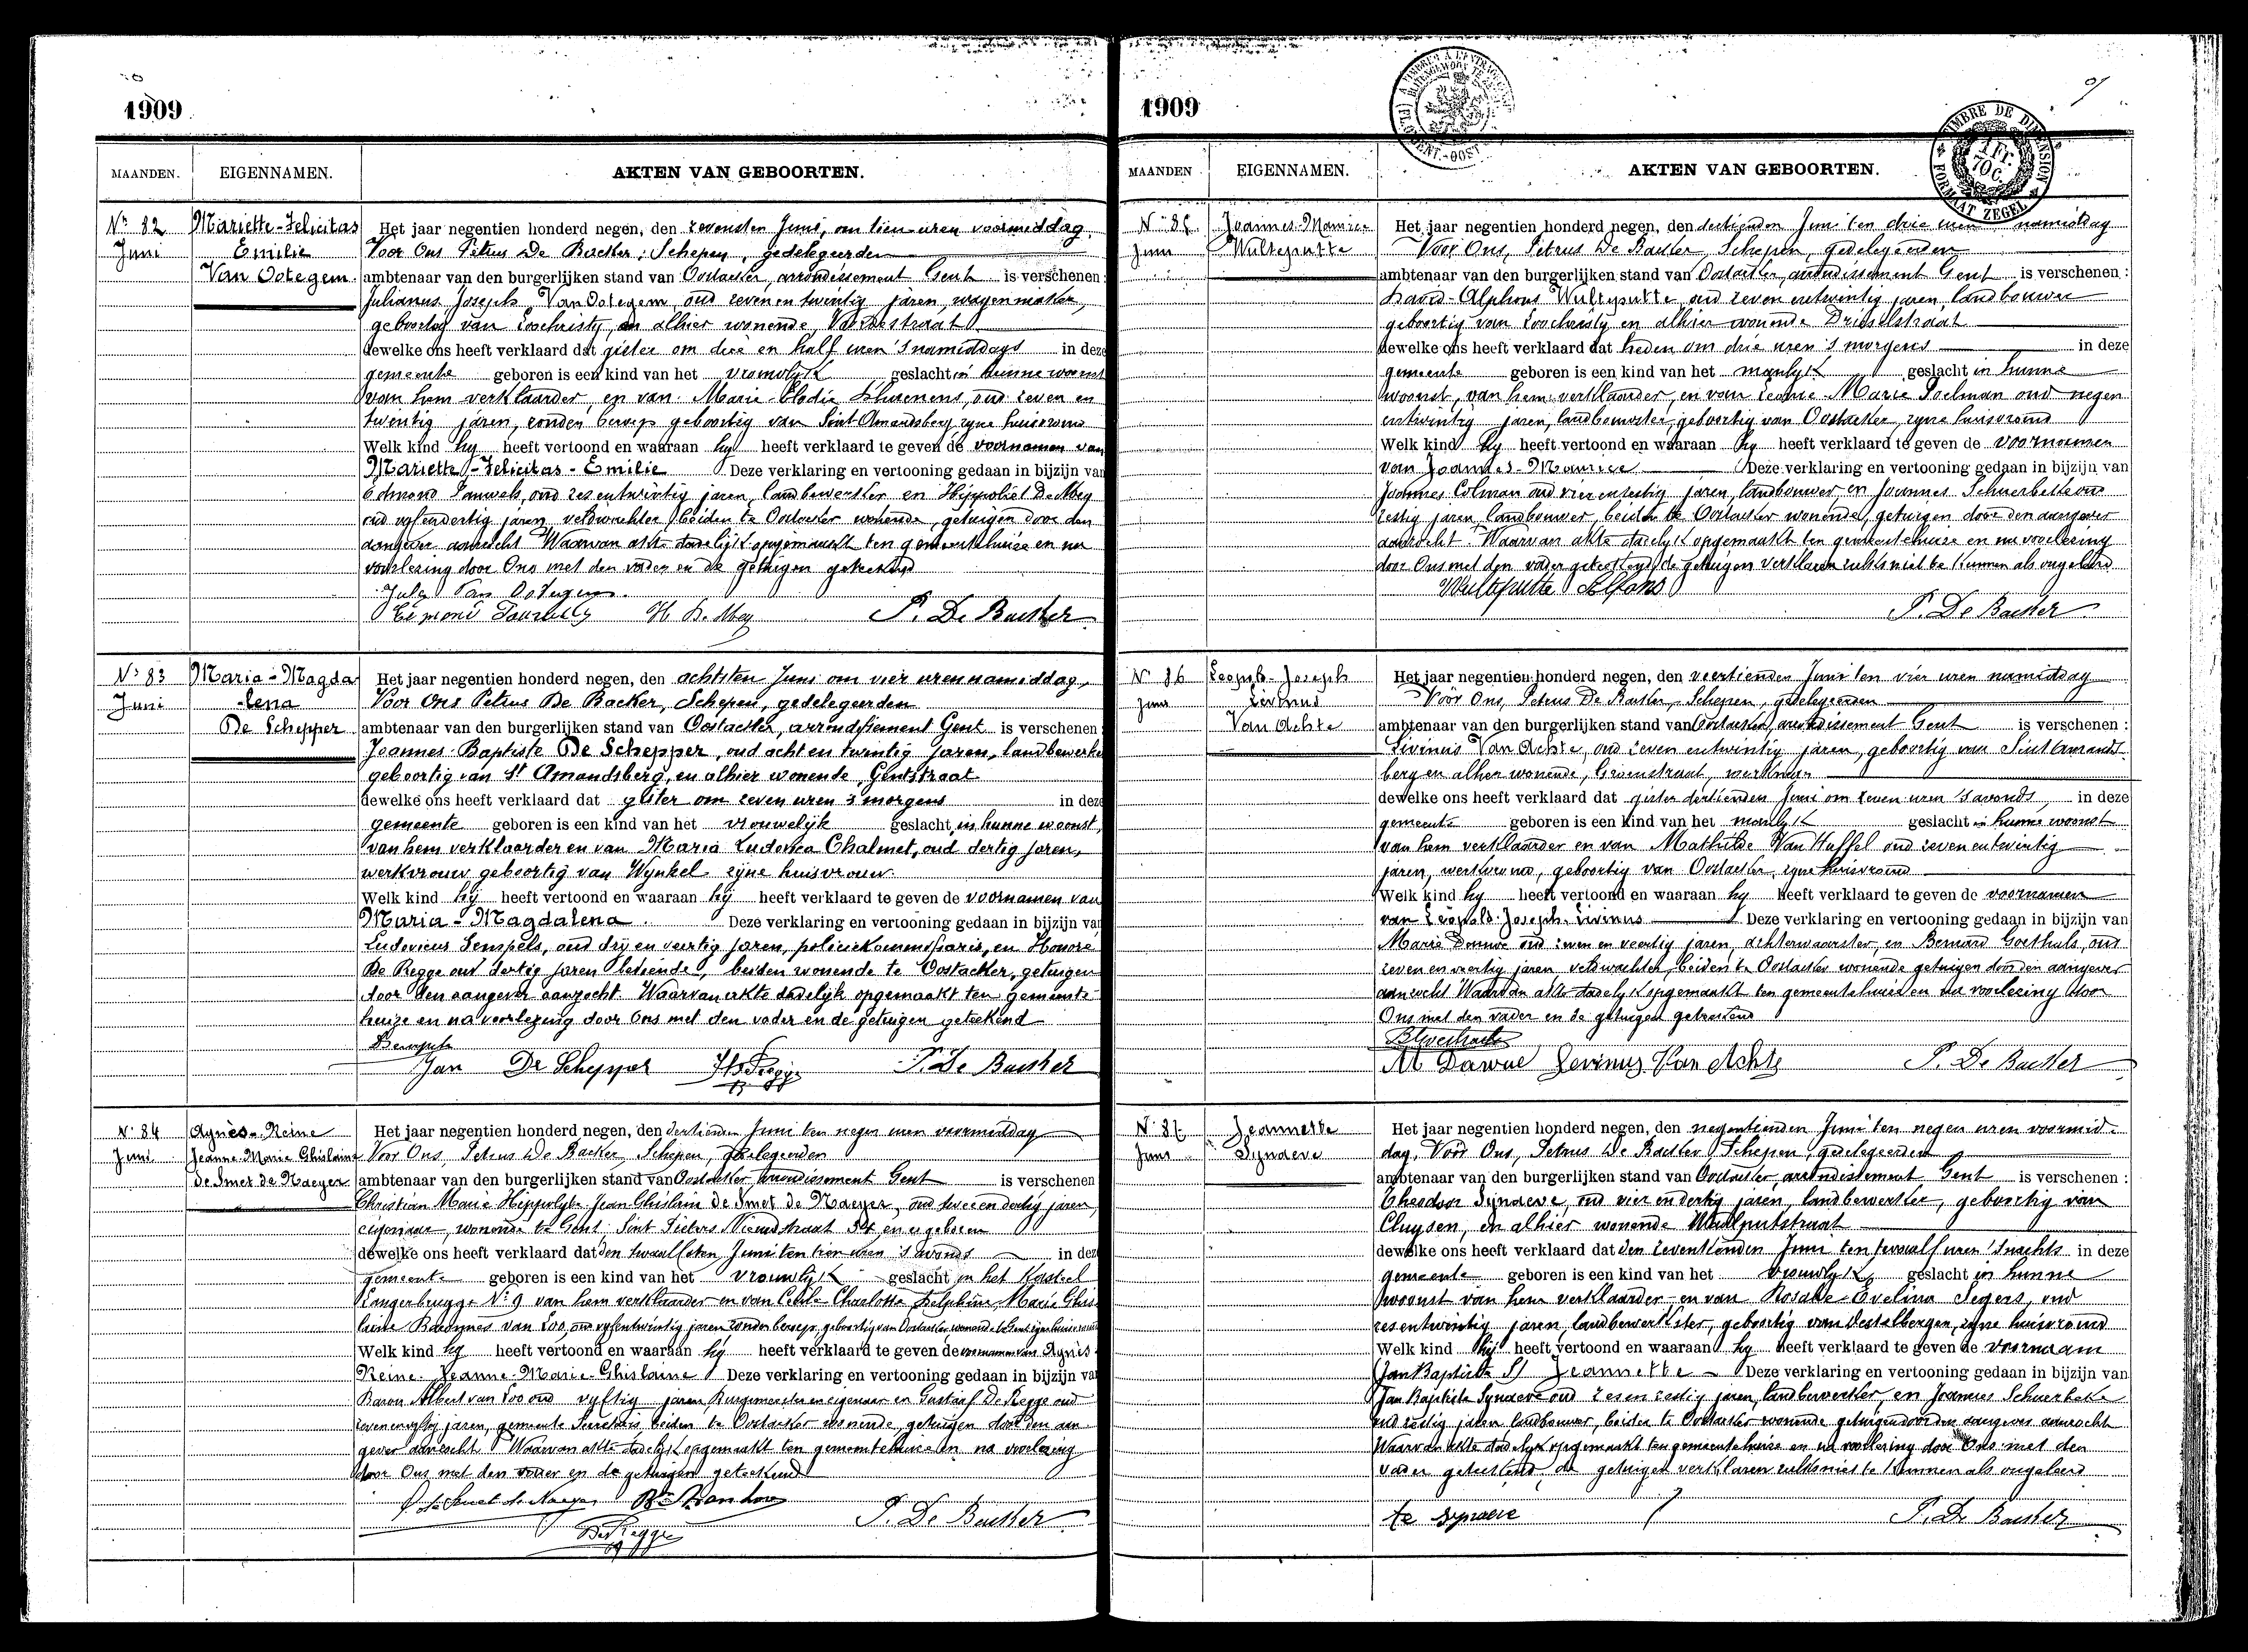 1909
MAANDEN. EIGENNAMEN. AKTEN VAN GEBOORTEN.
Nr 82 Juni
Mariette-Felicitas
Emilie
Van Ootegem
Het jaar negentien honderd negen, den zevensten Juni, om tien uren voormiddag,
Voor Ons Petrus De Backer, Schepen, gedelegeerden
ambtenaar van den burgerlijken stand van Oostacker, arrondissement Gent is verschenen:
Julianus Joseph Van Ootegem oud zeven en twintig jaren, wagenmaker,
geboortig van Loochristy, en alhier wonende,
dewelke ons heeft verklaard dat gister om drie en half uren 's namiddags in deze
gemeente geboren is een kind van het vrouwlyk geslacht in hunne woonst
van hem verklaarder, en van Marie Elodie oud zeven en
twintig jaren, zonder beroep geboortig van Sint Amandsberg zyne huisvrouw
Welk kind hy heeft vertoond en waaraan hy heeft verklaard te geven de voornamen van
Mariette-Felicitas-Emilie Deze verklaring en vertooning gedaan in bijzijn van
Edmond Pauwels, oud zes entwintig jaren, landbewerker en Hippoliet De Mey
oud vyfendertig jaren veldwachter beiden te Oostacker wonende, getuigen door den
aangever aanzocht Waarvan akte dadelijk opgemaakt ten gemeentehuize en na
voorlezing door Ons met den vader en de getuigen geteekend
Jules Van Ootegem
Edmond Pauwels H De Mey P. De Backer
Nr 83 Juni
Maria-Magda
-lena
De Schepper
Het jaar negentien honderd negen, den achtsten Juni om vier uren namiddag,
Voor Ons Petrus De Backer, Schepen, gedelegeerden
ambtenaar van den burgerlijken stand van Oostacker, arrondissement Gent is verschenen
Joannes-Baptiste De Schepper, oud acht en twintig jaren, landbewerker
geboortig van St Amandsberg, en alhier wonende, Gentstraat
dewelke ons heeft verklaard dat gister om zeven uren 's morgens in deze
gemeente geboren is een kind van het vrouwelijk geslacht, in hunne woonst,
van hem verklaarder en van Maria Ludovica Chalmet, oud dertig jaren,
werkvrouw geboortig van Wynkel zijne huisvrouw.
Welk kind hij heeft vertoond en waaraan hij heeft verklaard te geven de voornamen van
Maria-Magdalena Deze verklaring en vertooning gedaan in bijzijn van
Ludovicus Sempels, oud drij en veertig jaren, policiekommissaris, en Honoré
De Regge oud dertig jaren bediende, beiden wonende te Oostacker, getuigen
door den aangever aanzocht. Waarvan akte dadelijk opgemaakt ten gemeente-
huize en na voorlezing door Ons met den vader en de getuigen geteekend
Jan De Schepper H De Regge P. De Backer
Nr 84 Juni
Agnès-Reine
Jeanne-Marie Ghislaine
de Smet de Naeyer
Het jaar negentien honderd negen, den dertienden Juni ten negen uren voormiddag
Voor Ons, Petrus De Backer, Schepen, gedelegeerden
ambtenaar van den burgerlijken stand van Oostacker, arrondissement Gent is verschenen
Christian Marie Hippolyte Jean Ghislain de Smet de Naeyer, oud twee en dertig jaren,
eigenaar, wonende te Gent Sint Pieters Nieuwstraat en er geboren
dewelke ons heeft verklaard dat den twaalfsten Juni ten tien uren 's avonds in deze
gemeente geboren is een kind van het vrouwlyk geslacht in het Kasteel
Langerbrugge Nr 9 van hem verklaarder en van Cécile Charlotte Delphine Marie Ghis
laine Baronnes van Loo, oud vyfentwintig jaren zonder beroep, geboortig van Oostacker wonende te Gent zyne huisvrouw
Welk kind hy heeft vertoond en waaraan hy heeft verklaard te geven de voornamen van Agnès
Reine-Jeanne-Marie-Ghislaine Deze verklaring en vertooning gedaan in bijzijn van
Baron Albert van Loo oud vyftig jaren, Burgemeester en eigenaar en Gustaaf De Regge oud
zevenenvyftig jaren, gemeente Secretaris, beiden te Oostacker wonende, getuigen door den aan
gever aanzocht Waarvan akte dadelyk opgemaakt ten gemeentehuize en na voorlezing
door Ons met den vader en de getuigen geteekend
de Smet de Naeyer Bon A van Loo
De Regge P. De Backer
1909
MAANDEN EIGENNAMEN. AKTEN VAN GEBOORTEN.
TIMBRE DE DIMENSION
1 Fr. 70 c.
FORMAAT ZEGEL
Nr 85 Juni
Joannes-Maurice
Wulteputte
Het jaar negentien honderd negen, den dertienden Juni ten drie uren namiddag
Voor Ons, Petrus De Backer, Schepen, gedelegeerden
ambtenaar van den burgerlijken stand van Oostacker, arrondissement Gent is verschenen:
David-Alphons Wulteputte, oud zeven entwintig jaren, landbouwer
geboortig van Loochristy en alhier wonende Drieselstraat
dewelke ons heeft verklaard dat heden om drie uren 's morgens in deze
gemeente geboren is een kind van het manlyk geslacht in hunne
woonst, van hem verklaarder, en van Leonie Marie Poelman oud negen
entwintig jaren, landbewerkster, geboortig van Oostacker, zyne huisvrouw
Welk kind hy heeft vertoond en waaraan hy heeft verklaard te geven de voornamen
van Joannes-Maurice Deze verklaring en vertooning gedaan in bijzijn van
Joannes Colman oud vier en zestig jaren, landbouwer en Joannes Schuerbette oud
zestig jaren, landbouwer, beiden te Oostacker wonende, getuigen door den aangever
aanzocht. Waarvan akte dadelyk opgemaakt ten gemeentehuize en na voorlezing
door Ons met den vader geteekend, de getuigen verklaren zulks niet te kunnen als ongeleerd
Wulteputte Alfons
P. De Backer
Nr 86 Juni
Leopold-Joseph
Livinus
Van Achte
Het jaar negentien honderd negen, den veertienden Juni ten vier uren namiddag
Voor Ons, Petrus De Backer, Schepen, gedelegeerden
ambtenaar van den burgerlijken stand van Oostacker, arrondissement Gent is verschenen:
Livinus Van Achte, oud zeven entwintig jaren, geboortig van Sint Amands
berg en alhier wonende, Groenstraat, werkman
dewelke ons heeft verklaard dat gister dertienden Juni om zeven uren 's avonds, in deze
gemeente geboren is een kind van het manlyk geslacht in hunne woonst
van hem verklaarder en van Mathilde Van Huffel oud zeven entwintig
jaren, werkvrouw, geboortig van Oostacker, zyne huisvrouw
Welk kind hy heeft vertoond en waaraan hy heeft verklaard te geven de voornamen
van Leopold-Joseph-Livinus Deze verklaring en vertooning gedaan in bijzijn van
Marie oud zeven en veertig jaren, achterwaarster, en Bernard Goethals, oud
zeven en veertig jaren veldwachter, beiden te Oostacker wonende getuigen door den aangever
aanzocht Waarvan akte dadelyk opgemaakt ten gemeentehuize en na voorlezing door
Ons met den vader en de getuigen geteekend
M Dawue Levinus Van Achte P. De Backer
Nr 87 Juni
Jeannette
Synaeve
Het jaar negentien honderd negen, den negentienden Juni ten negen uren voormid-
dag, Voor Ons, Petrus De Backer Schepen, gedelegeerden
ambtenaar van den burgerlijken stand van Oostacker, arrondissement Gent is verschenen:
Theodoor Synaeve, oud vier en dertig jaren, landbewerker, geboortig van
Cluysen, en alhier wonende Waalputstraat
dewelke ons heeft verklaard dat den zeventienden Juni ten twaalf uren 's nachts in deze
gemeente geboren is een kind van het vrouwlyk geslacht in hunne
woonst van hem verklaarder en van Rosalie-Evelina Segers, oud
zesentwintig jaren, landbewerkster, geboortig van Destelbergen, zyne huisvrouw
Welk kind hy heeft vertoond en waaraan hy heeft verklaard te geven de voornaam
Jeannette Deze verklaring en vertooning gedaan in bijzijn van
Jan Baptiste Synaeve oud zes en zestig jaren, landbewerker, en Joannes Schuerbette
oud zestig jaren landbouwer, beiden te Oostacker wonende getuigen door den aangever aanzocht
Waarvan akte dadelyk opgemaakt ten gemeentehuize en na voorlezing door Ons met den
vader geteekend, de getuigen verklaren zulks niet te kunnen als ongeleerd
te synaeve P. De Backer